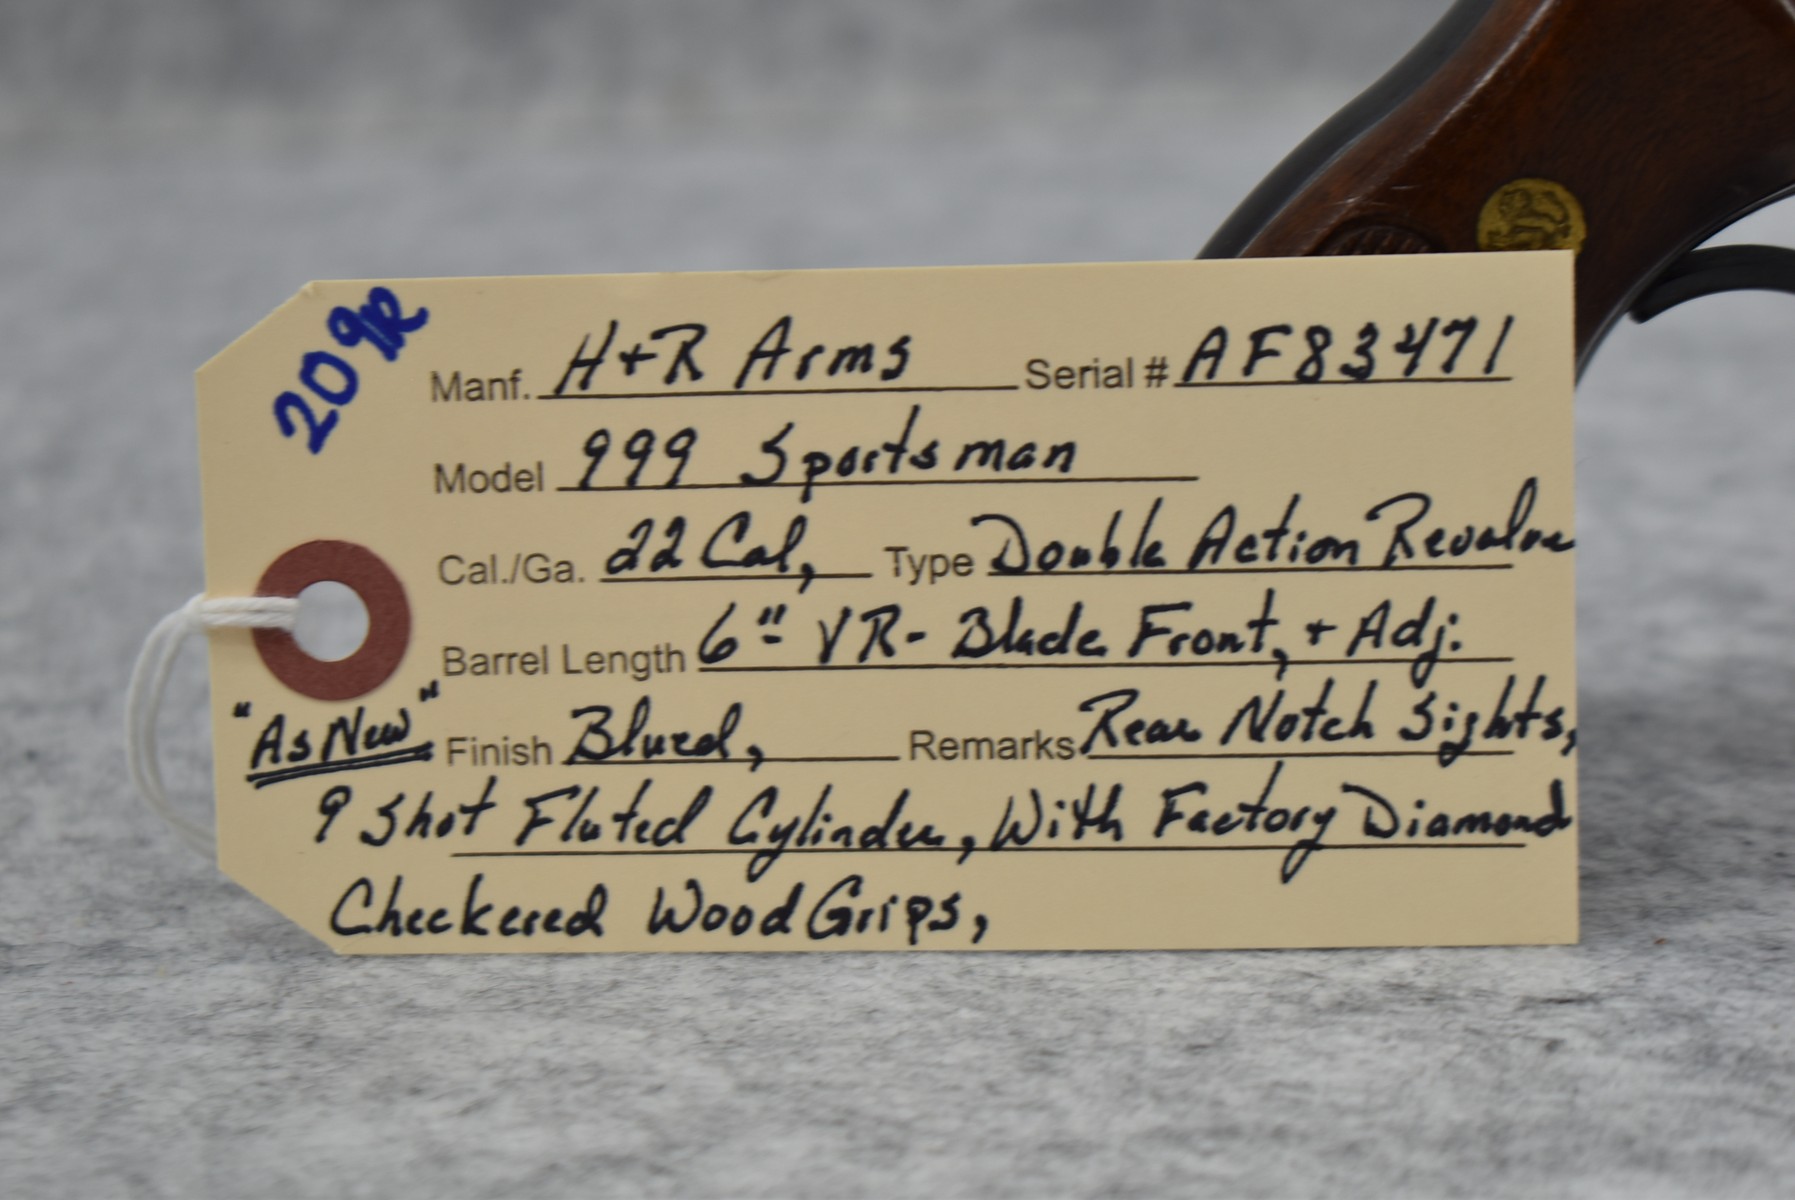 209R
Manf. H+R Arms Serial # AF83471
Model 999 Sportsman
Cal./Ga. 22 Cal, Type Double Action Revolve
Barrel Length 6" VR- Blade Front, + Adj.
"As New" Finish Blued, Remarks Rear Notch Sights,
9 Shot Fluted Cylinder, With Factory Diamond
Checkered Wood Grips,